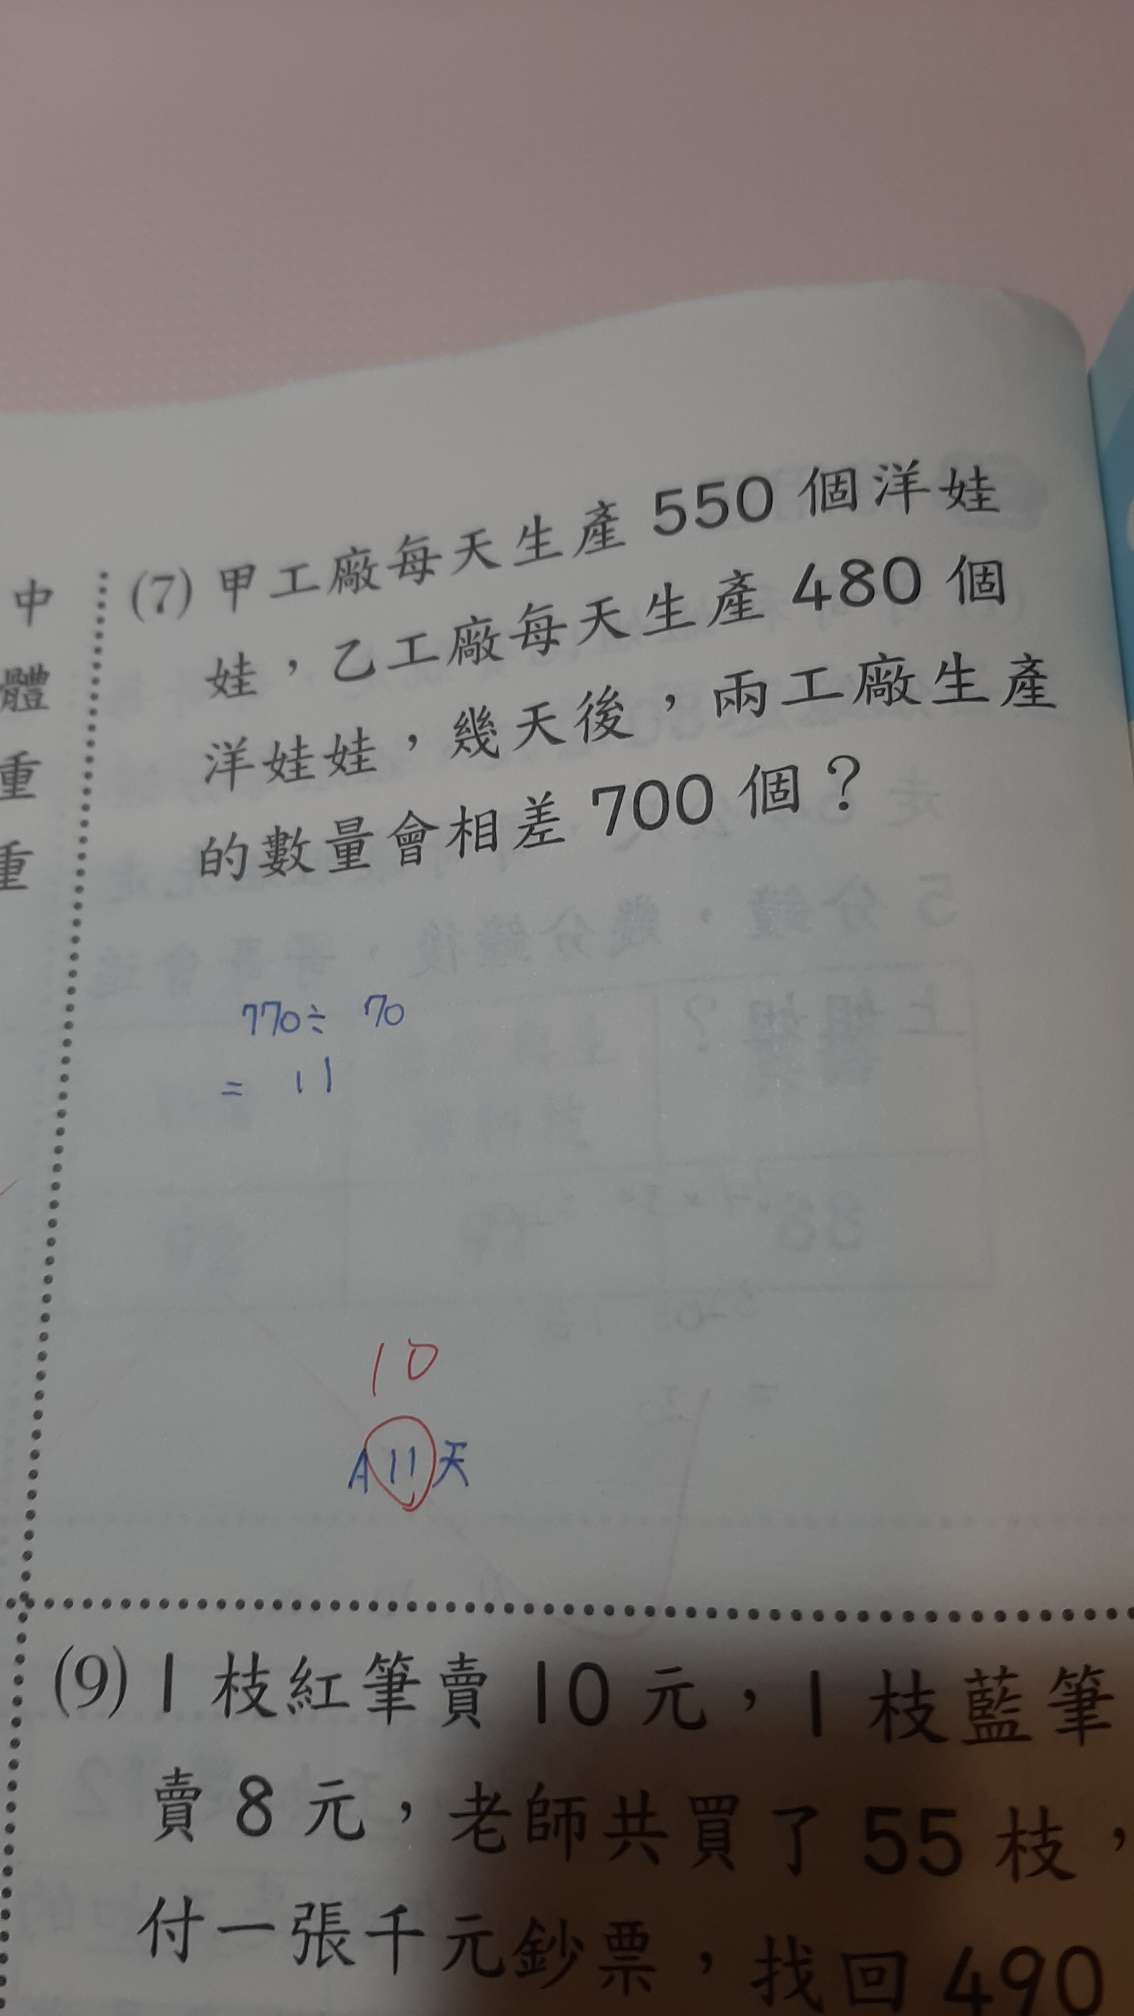 中
體
重
重
(7) 甲工廠每天生產 550 個洋娃
娃，乙工廠每天生產 480 個
洋娃娃，幾天後，兩工廠生產
的數量會相差 700 個？
770÷ 70
= 11
10
A 11天
(9) 1 枝紅筆賣 10 元，1 枝藍筆
賣 8 元，老師共買了 55 枝，
付一張千元鈔票，找回 490